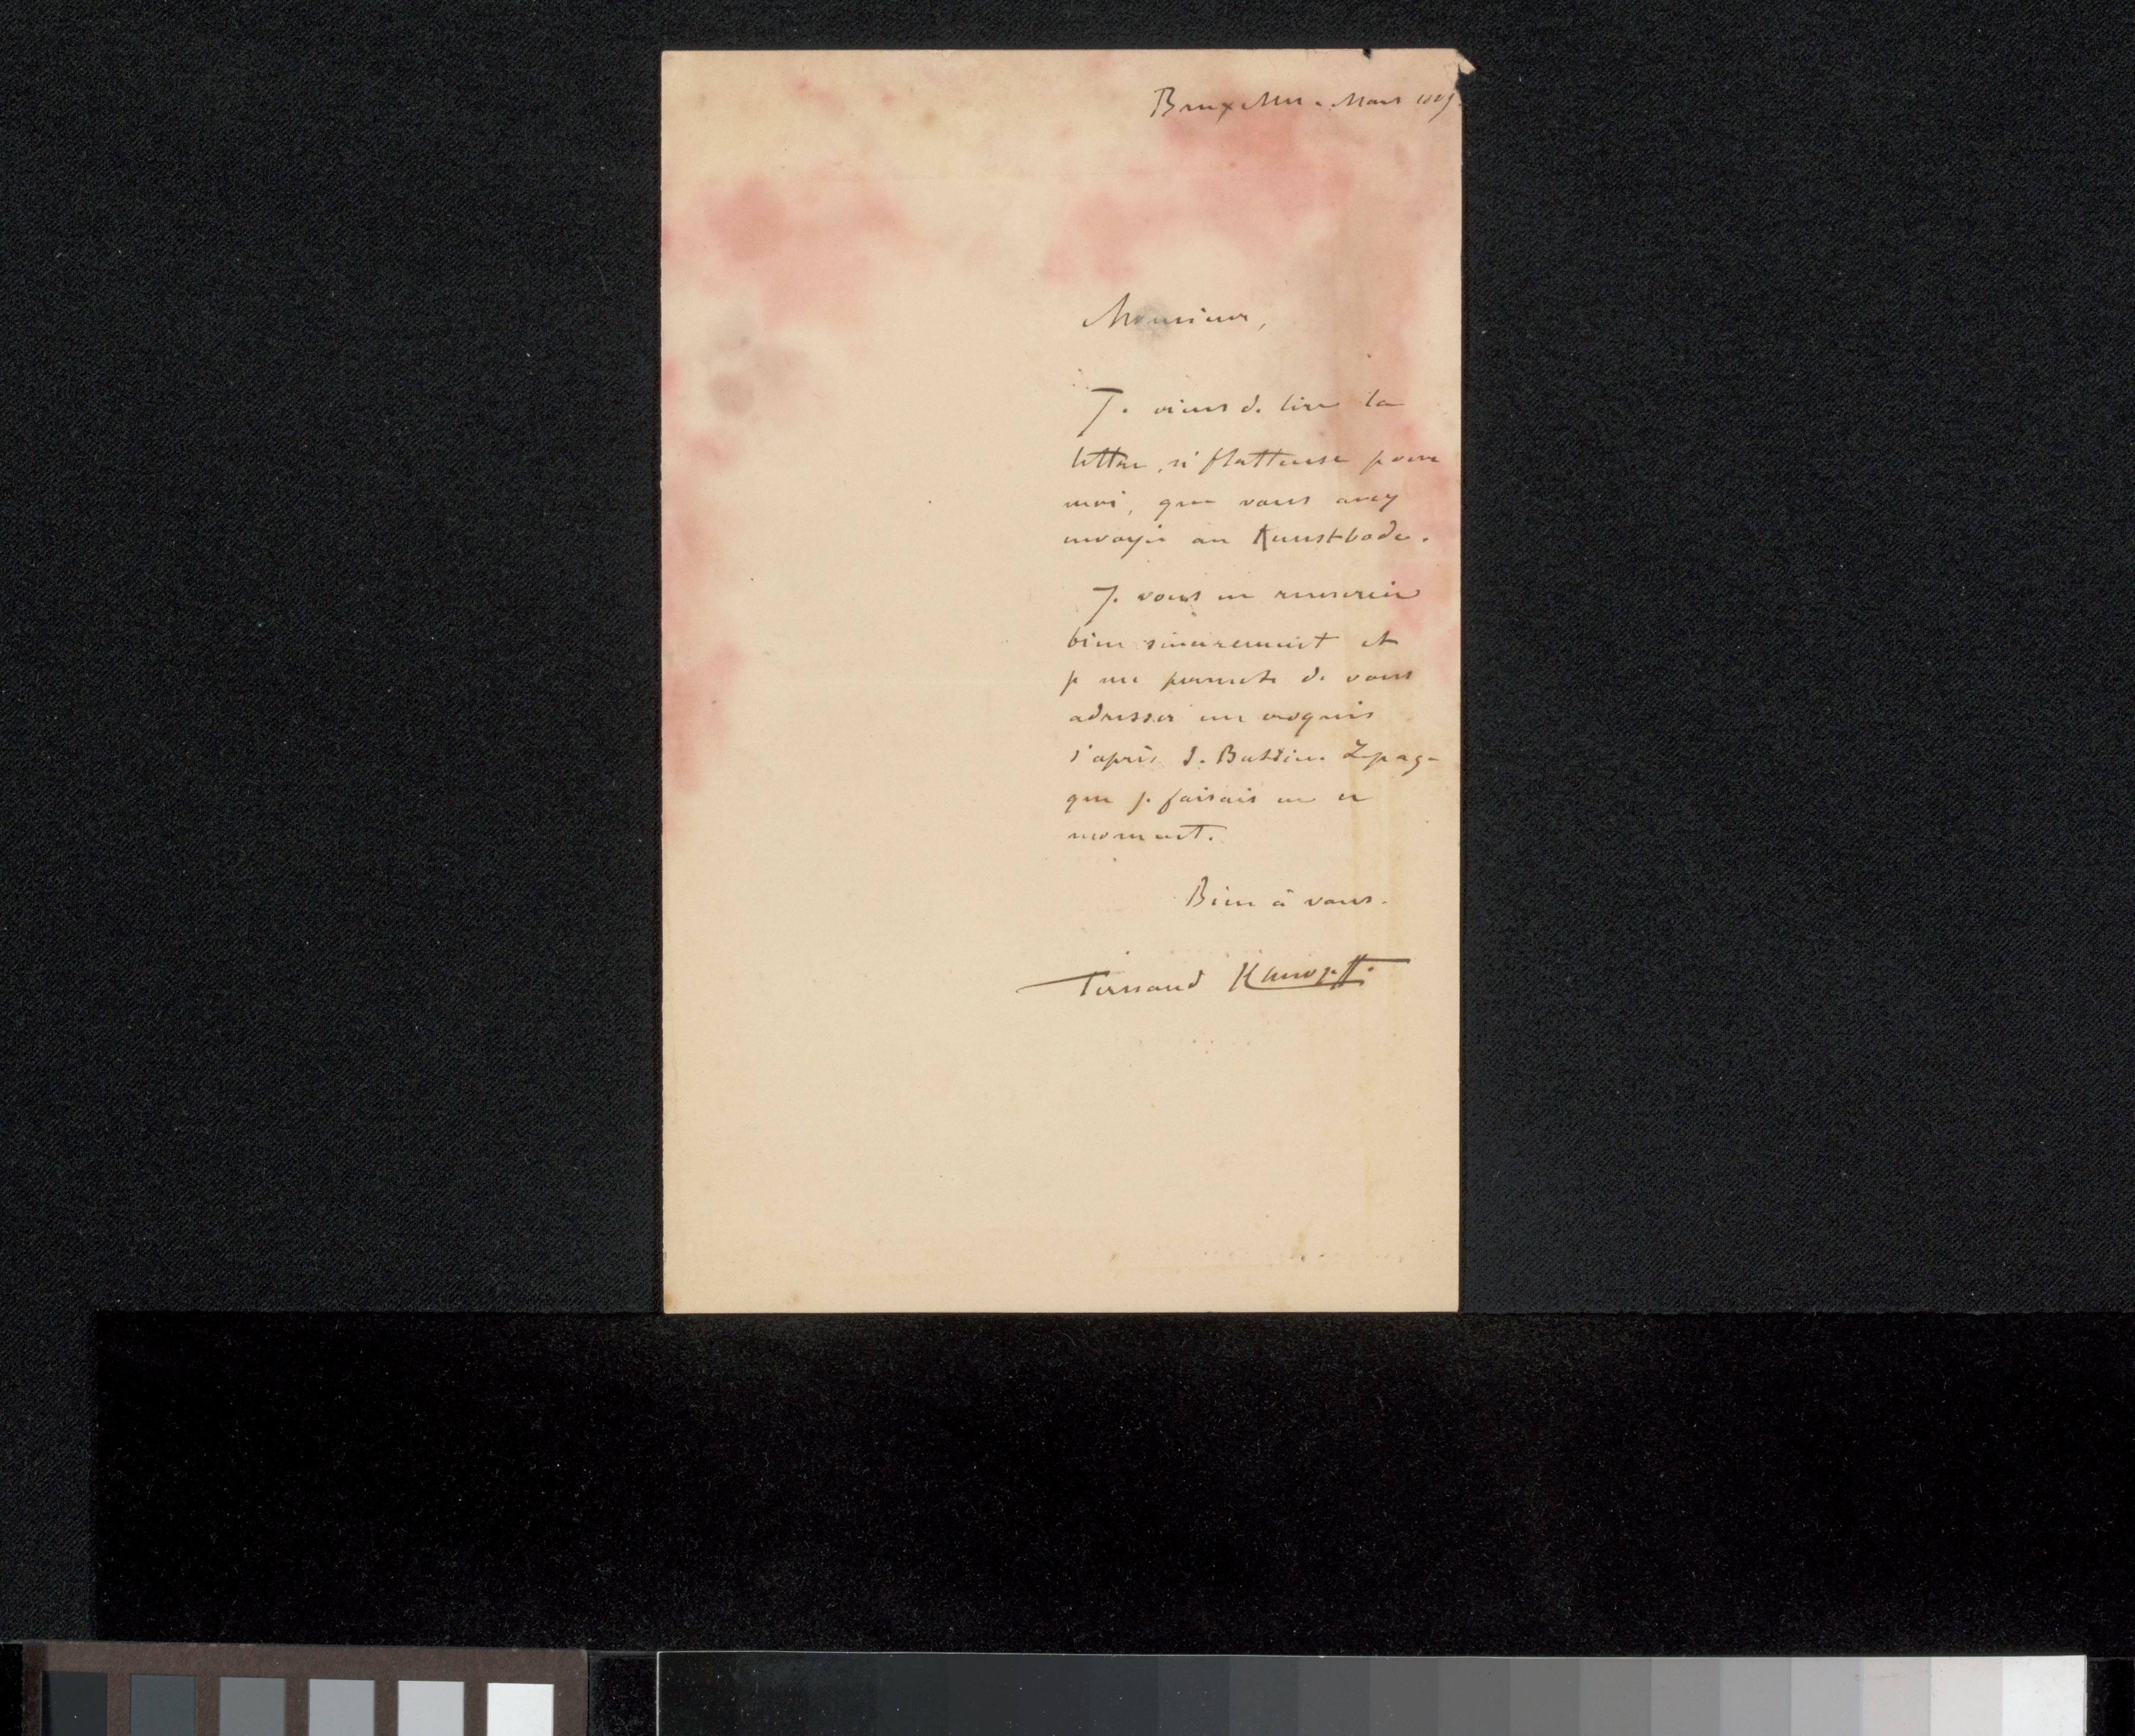 Bruxelles. Mars
Monsieur,
Je viens de lire la
lettre, si flatteuse pour
moi, que vous avez
envoyée au Kunstbode.
Je vous en remercie
bien sincèrement et
je me permets de vous
adresser un croquis
d'après J. Bastien Lepage
que je faisais en ce
moment.
Bien à vous.
Fernand Khnopff.